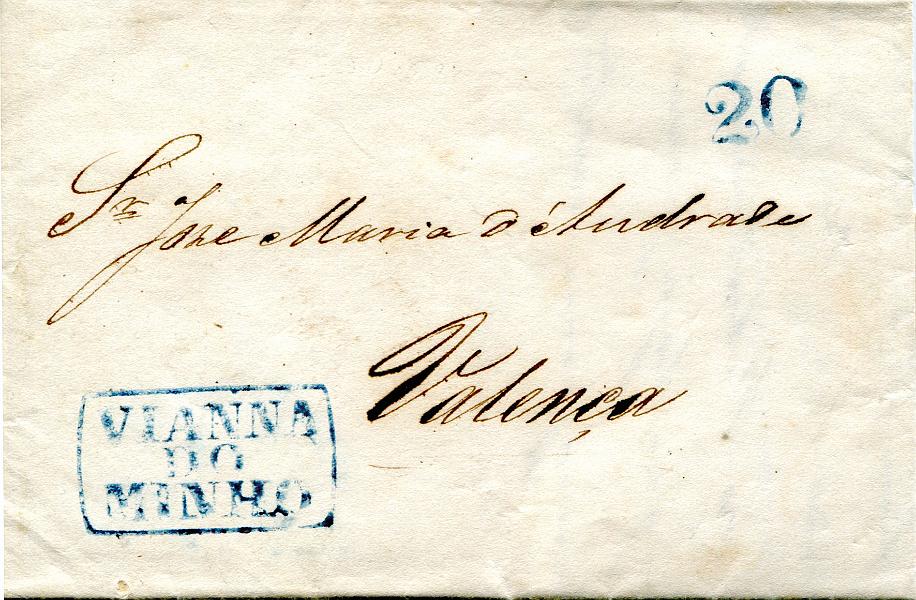 20
Sr. Jose Maria d'Andrade
Valença
VIANNA
DO
MINHO